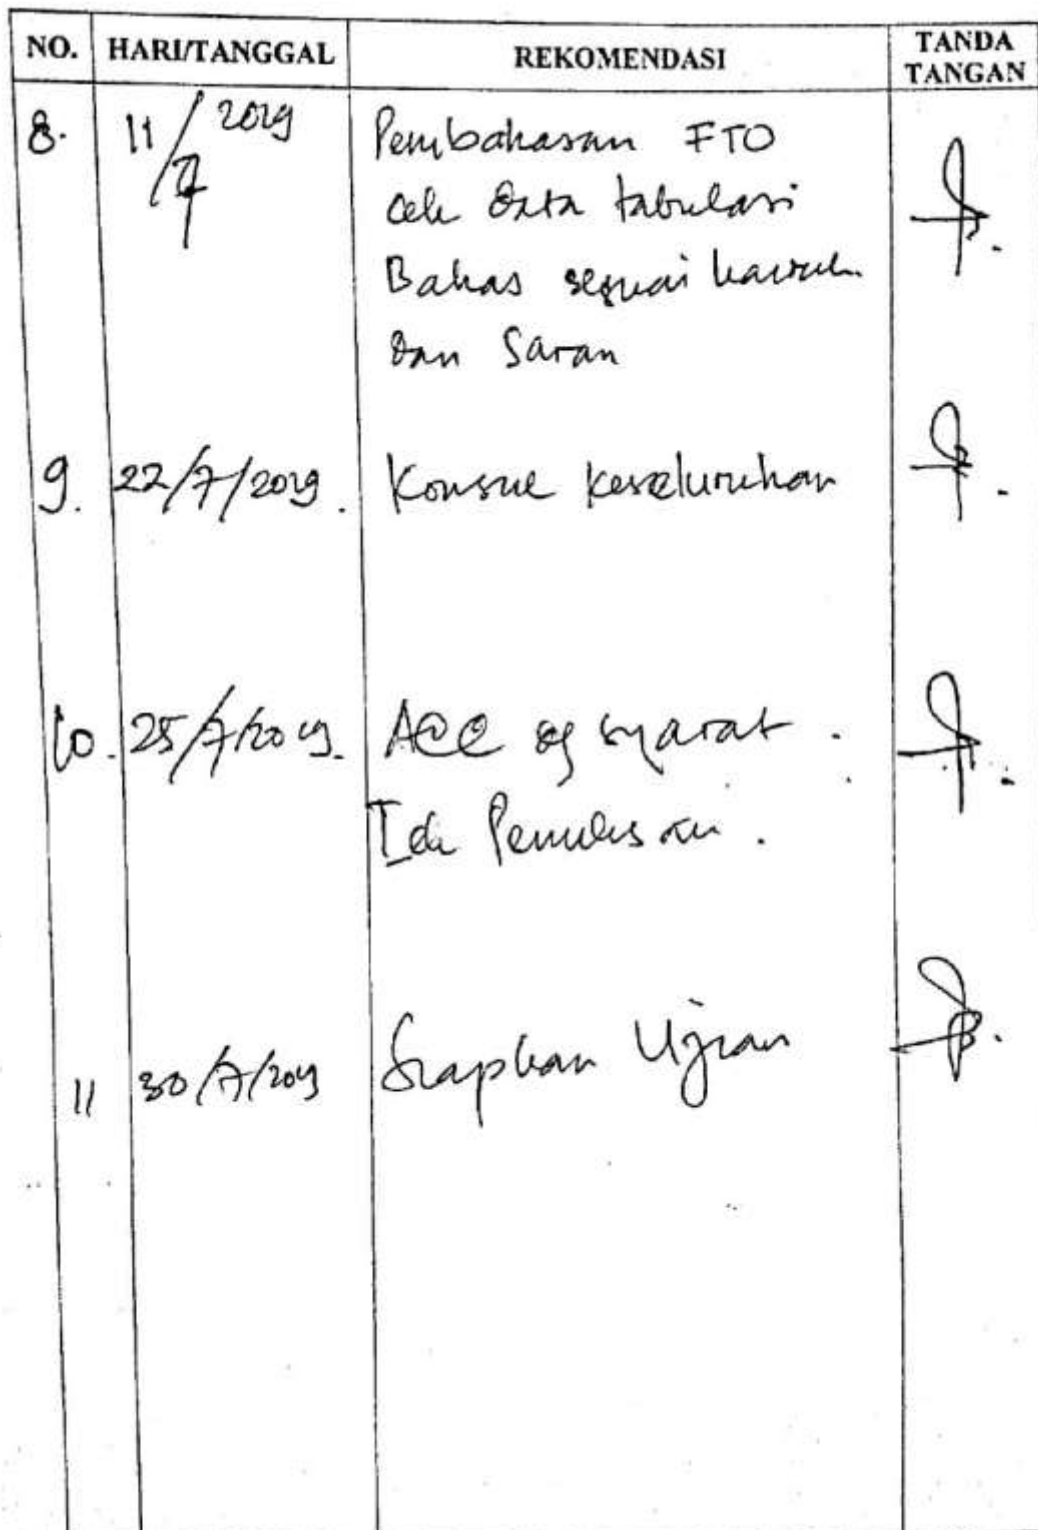 NO. HARI/TANGGAL REKOMENDASI TANDA TANGAN
8. 11/7 2019 Pembahasan FTO
cek data tabulasi
Bahas sesuai
dan Saran
9. 22/7/2019. Konsul keseluruhan
10. 25/7/2019. ACC syarat.
Penulisan.
11 30/7/2019 Siapkan Ujian